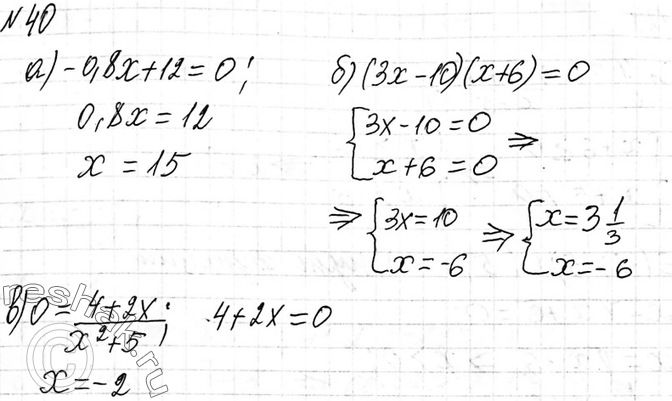 № 40
а) -0,8x+12=0;
0,8x=12
x =15
б) (3x-10)(x+6)=0
{3x-10=0
x+6=0 ⇒
⇒ {3x=10
x=-6 ⇒ {x=3 1/3
x=-6
в) 0 = (4+2x)/(x²+5); 4+2x=0
x=-2
© Reshak.ru